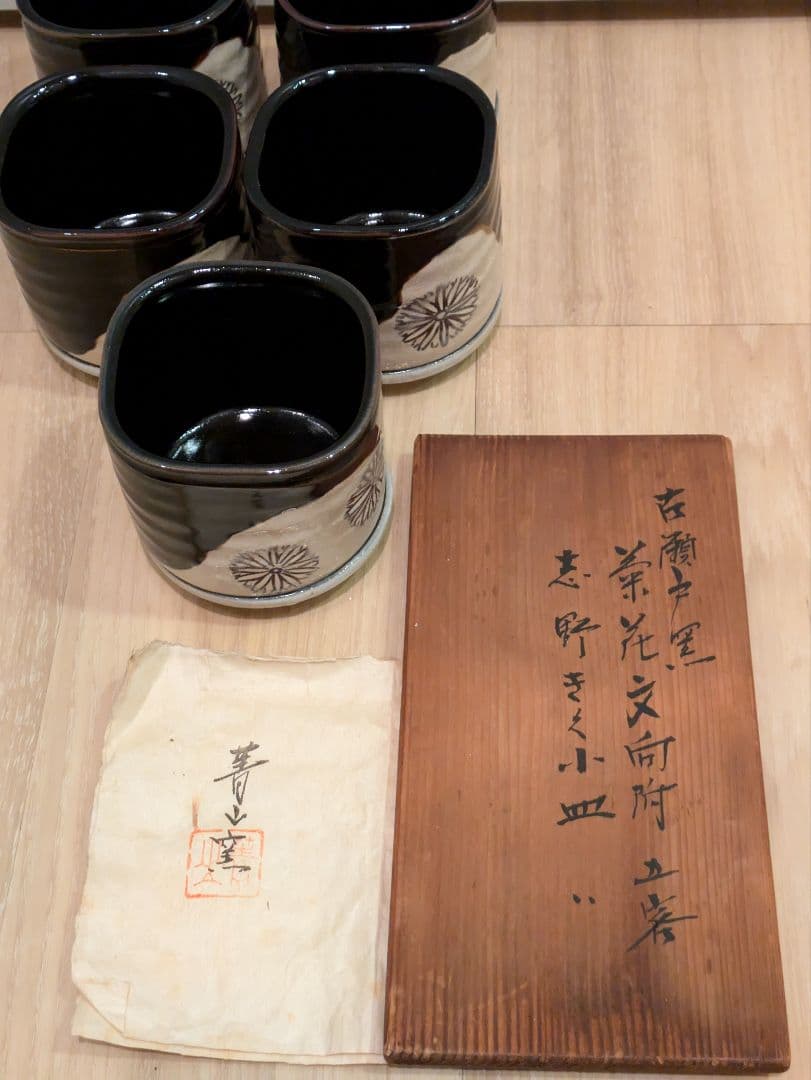 古瀬戸窯
菊花文向附 五客
志野きく小皿 〃
青山窯